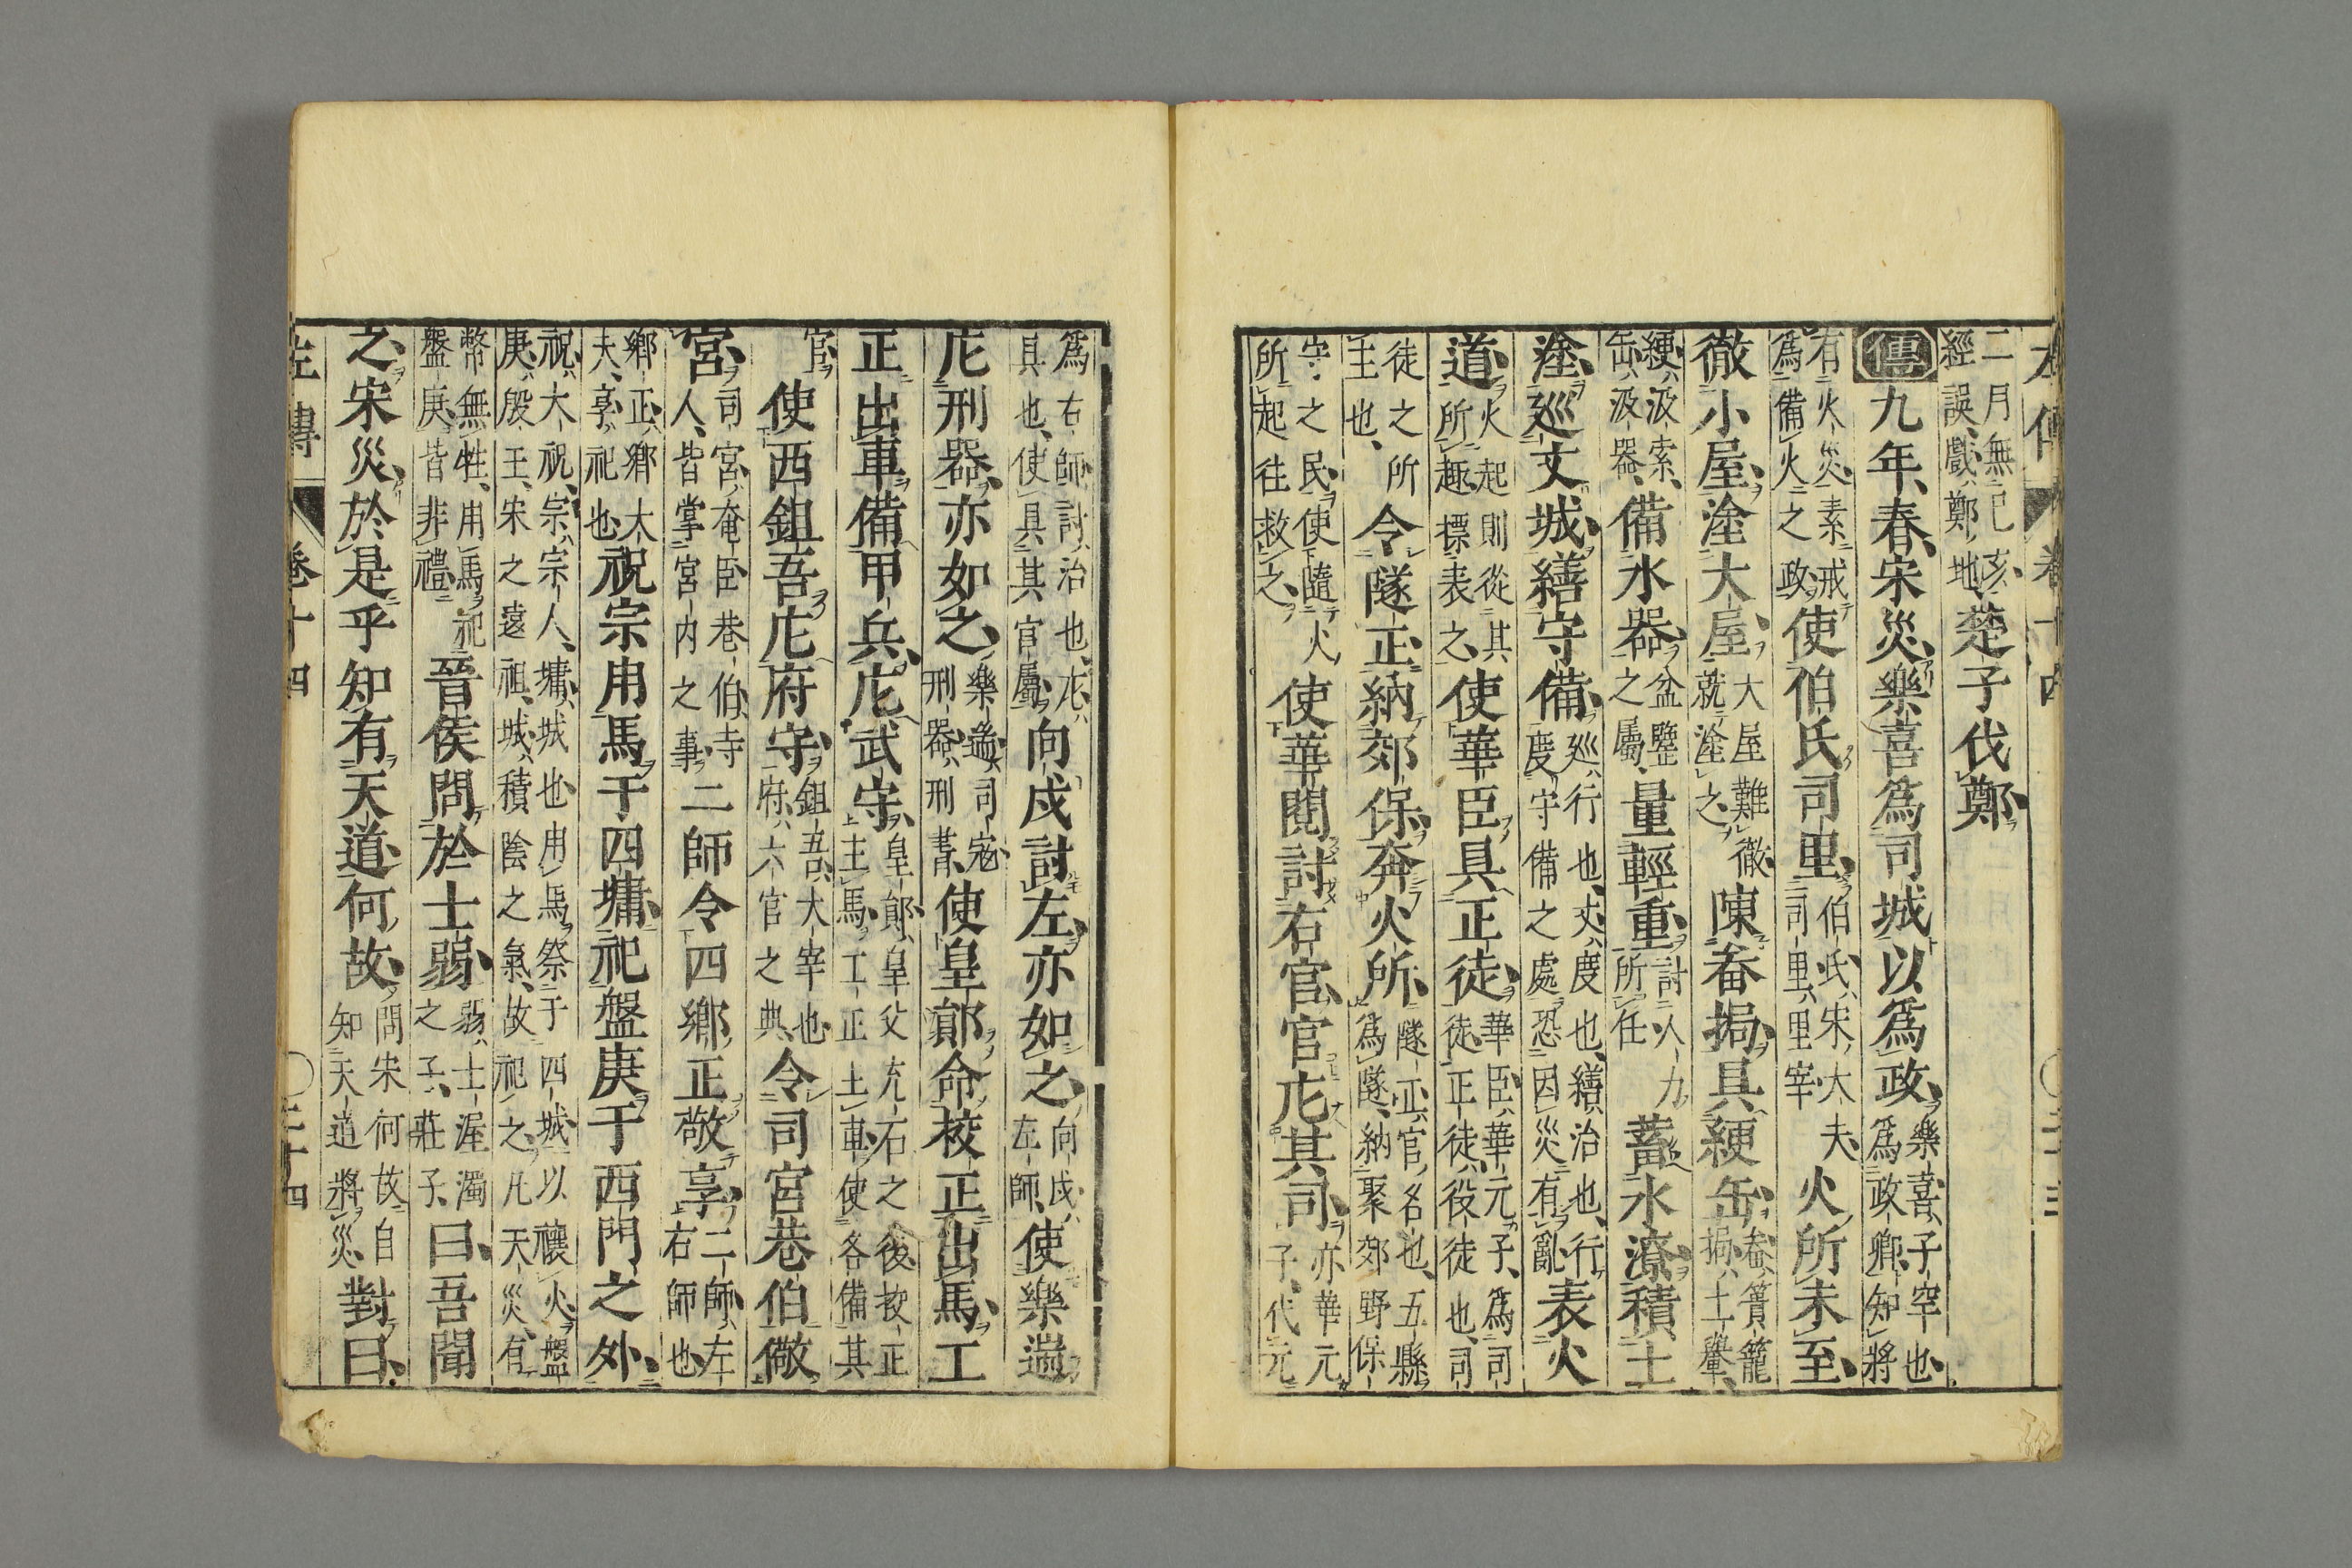 左傳 卷十四 ○ 三十三
二月無己亥、經誤、戲、鄭地、楚子伐鄭、
傳九年、春、宋災、樂喜爲司城以爲政、樂喜、子空也、爲政卿、知將
有火災、素戒爲備火之政、使伯氏司里、伯氏、宋大夫、司里、里宰、火所未至、
徹小屋、塗大屋、大屋難徹、就塗之、陳畚挶、具綆缶、畚、簣籠、挶、土轝、
綆、汲索、缶、汲器、備水器、盆鑒之屬、量輕重、計人力所任、蓄水潦、積土
塗、巡丈城、繕守備、巡、行也、丈、度也、繕、治也、行度守備之處、恐因災有亂、表火
道、火起則從其所趣、標表之、使華臣具正徒、華臣、華元子、爲司徒、正徒、役徒也、司
徒之所主也、令隧正納郊保、奔火所、隧正、官名也、五縣爲隧、納聚郊野保
守之民、使隨火所起往救之、使華閱討右官、官庀其司、亦華元子、代元
爲右師、討、治也、庀、具也、使具其官屬、向戌討左、亦如之、向戌、左師、使樂遄
庀刑器、亦如之、樂遄、司寇、刑器、刑書、使皇鄖命校正出馬、工
正出車、備甲兵、庀武守、皇鄖、皇父充石之後、校正主馬、工正主車、使各備其
官、使西鉏吾庀府守、鉏吾、大宰也、府、六官之典、令司宮巷伯儆
宮、司宮、奄臣、巷伯、寺人、皆掌宮内之事、二師令四鄉正敬享、二師、左右師也、
鄉正、鄉大夫、享、祀也、祝宗用馬于四墉、祀盤庚于西門之外、
祝、大祝、宗、宗人、墉、城也、用馬祭于四城以禳火、盤庚、殷王、宋之遠祖、城、積陰之氣、故祀之、凡天災、有
幣無牲、用馬、祀盤庚、皆非禮、晉侯問於士弱、弱、士渥濁之子、莊子、曰、吾聞
之、宋災、於是乎知有天道、何故、問宋何故自知天道將災、對曰、
左傳 卷十四 ○ 三十四